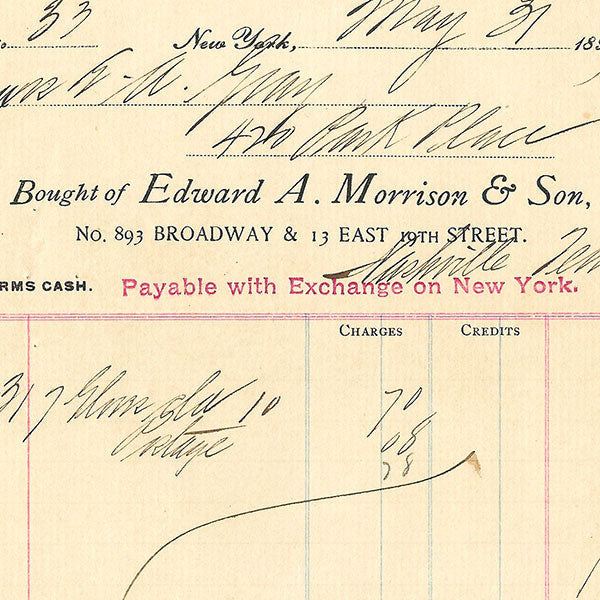 33
New York, May 31 189
A. Gray
420 Park Place
Bought of Edward A. Morrison & Son,
No. 893 BROADWAY & 13 EAST 19TH STREET.
Nashville Ten
RMS CASH. Payable with Exchange on New York.
CHARGES CREDITS
31 7 10 70
Postage 08
78